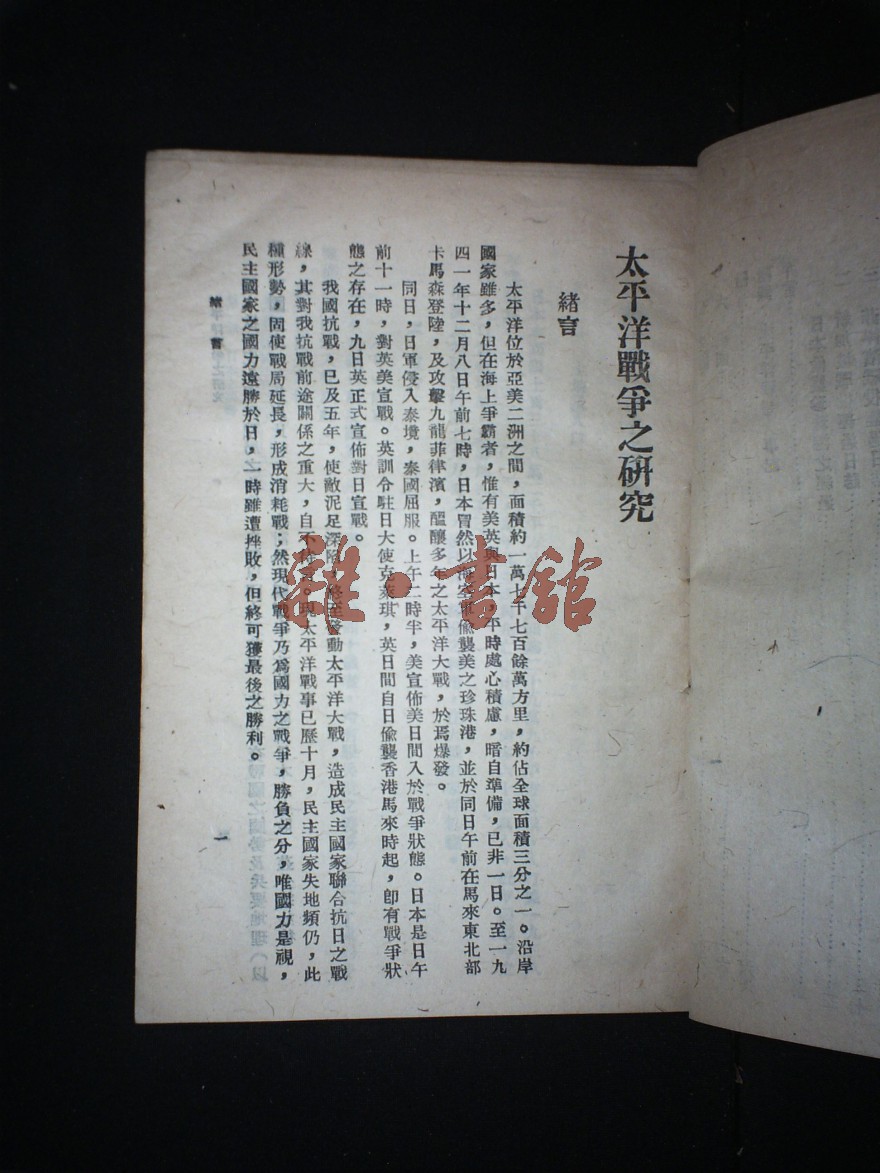 太平洋戰爭之研究
緒言
太平洋位於亞美二洲之間，面積約一萬七千七百餘萬方里，約佔全球面積三分之一。沿岸
國家雖多，但在海上爭霸者，惟有美英與日本，平時處心積慮，暗自準備，已非一日。至一九
四一年十二月八日午前七時，日本冒然以海空軍偷襲美之珍珠港，並於同日午前在馬來東北部
卡馬森登陸，及攻擊九龍菲律濱，醞釀多年之太平洋大戰，於焉爆發。
同日，日軍侵入泰境，泰國屈服。上午二時半，美宣佈美日間入於戰爭狀態。日本是日午
前十一時，對英美宣戰。英訓令駐日大使克萊琪，英日間自日偷襲香港馬來時起，卽有戰爭狀
態之存在，九日英正式宣佈對日宣戰。
我國抗戰，已及五年，使敵泥足深陷，終至發動太平洋大戰，造成民主國家聯合抗日之戰
線，其對我抗戰前途關係之重大，自不待言。現太平洋戰事已歷十月，民主國家失地頻仍，此
種形勢，固使戰局延長，形成消耗戰；然現代戰爭乃爲國力之戰爭，勝負之分，唯國力是視，
民主國家之國力遠勝於日，一時雖遭挫敗，但終可獲最後之勝利。
緒言
一
雜·書館